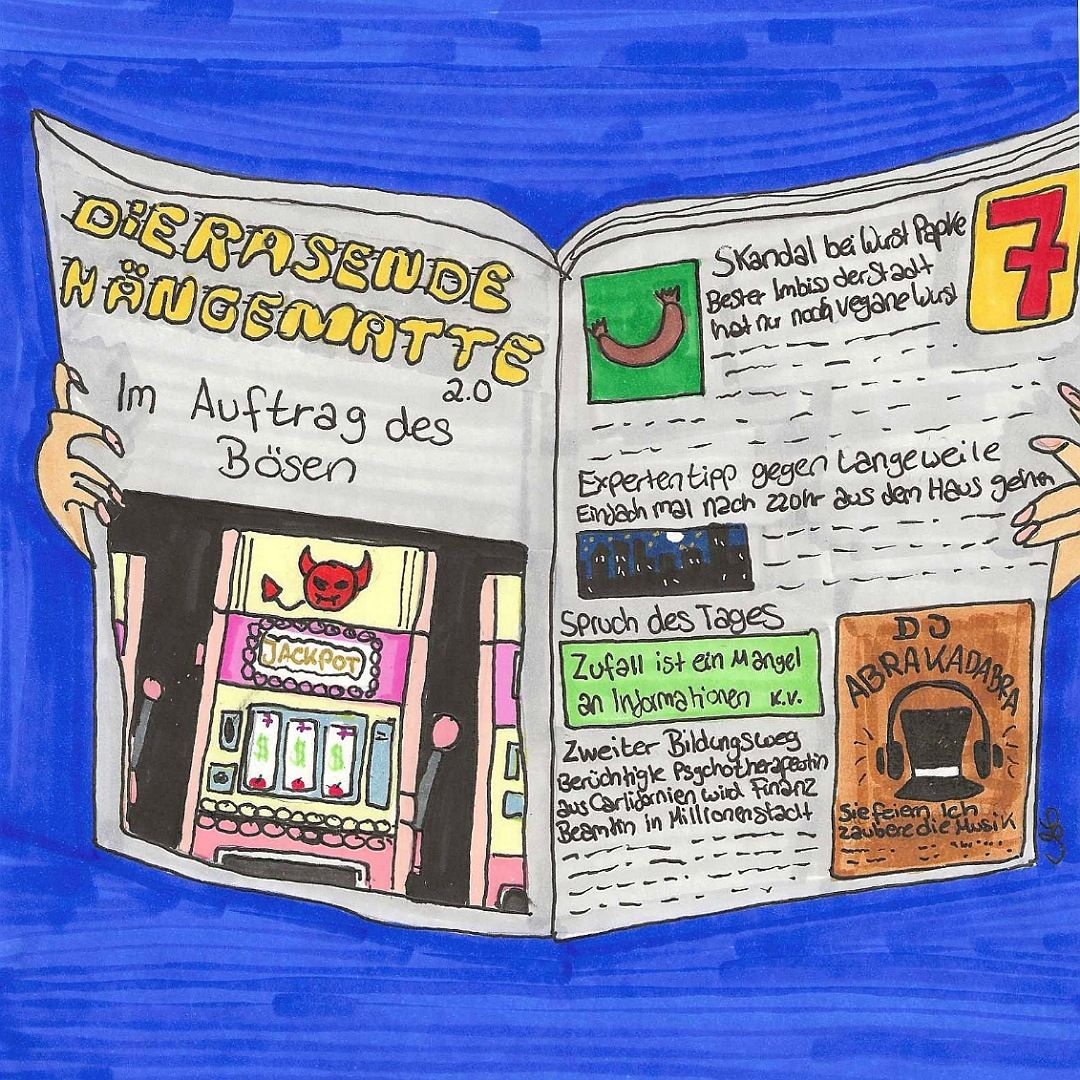 DiE RASENDE
HÄNGEMATTE
2.0
Im Auftrag des
Bösen
JACKPOT
7 7 7
$ $ $
Skandal bei Wurst Papke
Bester Imbiss der Stadt
hat nur noch vegane Wurst
7
Expertentipp gegen Langeweile
Einfach mal nach 22Uhr aus dem Haus gehen
Spruch des Tages
Zufall ist ein Mangel
an Informationen K.V.
Zweiter Bildungsweg
Berüchtigte Psychotherapeutin
aus Carlifornien wird Finanz
Beamtin in Millionenstadt
DJ
ABRAKADABRA
Sie feiern, Ich
zaubere die Musik